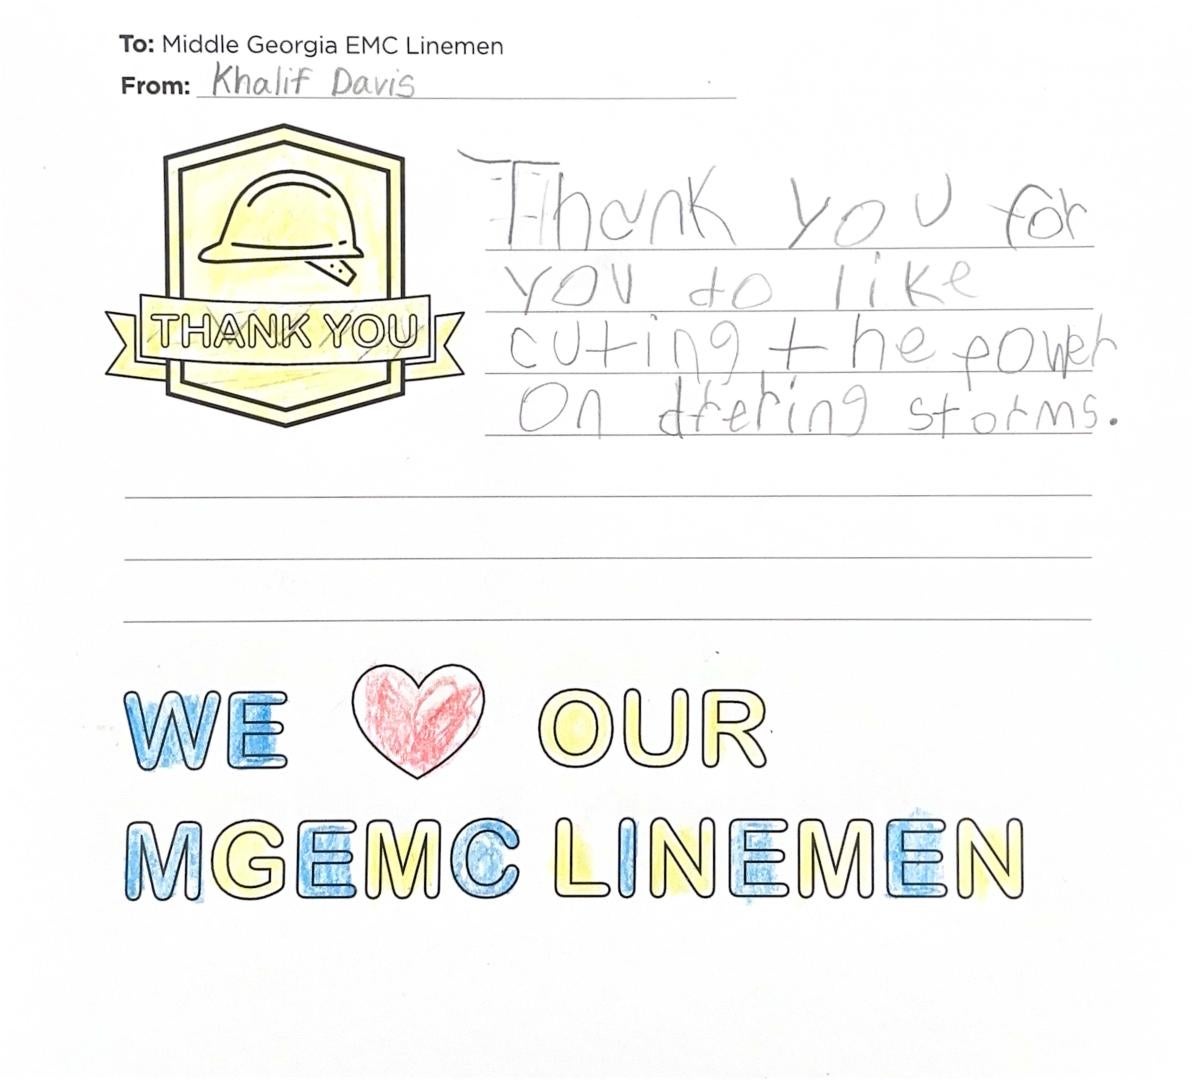 To: Middle Georgia EMC Linemen
From: Khalif Davis
THANK YOU
Thank you for
you do like
cuting the power
on dfering storms.
WE OUR
MGEMC LINEMEN